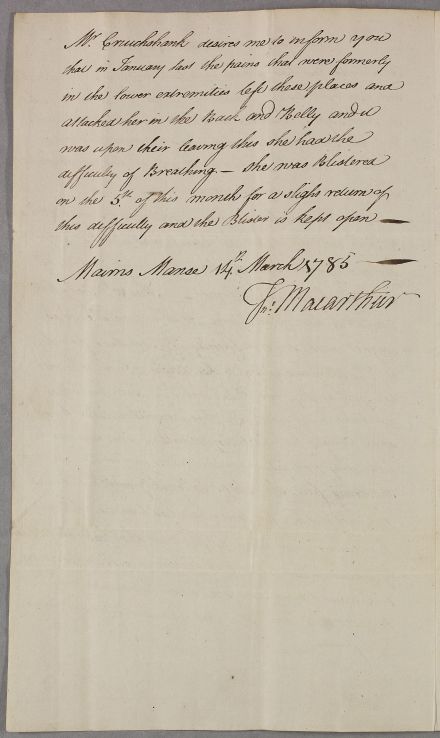 Mr. Cruickshank desires me to inform you
that in January last the pains that were formerly
in the lower extremities left these places and
attacked her in the Back and Belly and it
was upon their leaving this she had the
difficulty of Breathing. — She was Blistered
on the 5th. of this month for a slight return of
this difficulty and the Blister is kept open —
Mairns Manse 14th March 1785 —
Jn: Macarthur